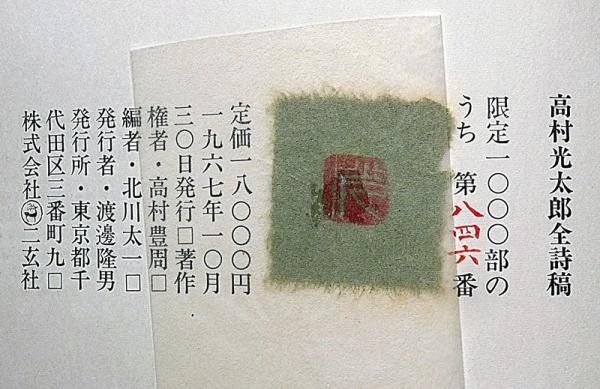 高村光太郎全詩稿
限定一〇〇〇部の
うち 第八四六番
定価一八〇〇〇円
一九六七年一〇月
三〇日発行□著作
権者・高村豊周□
編者・北川太一□
発行者・渡邊隆男
発行所・東京都千
代田区三番町九□
株式会社 二玄社